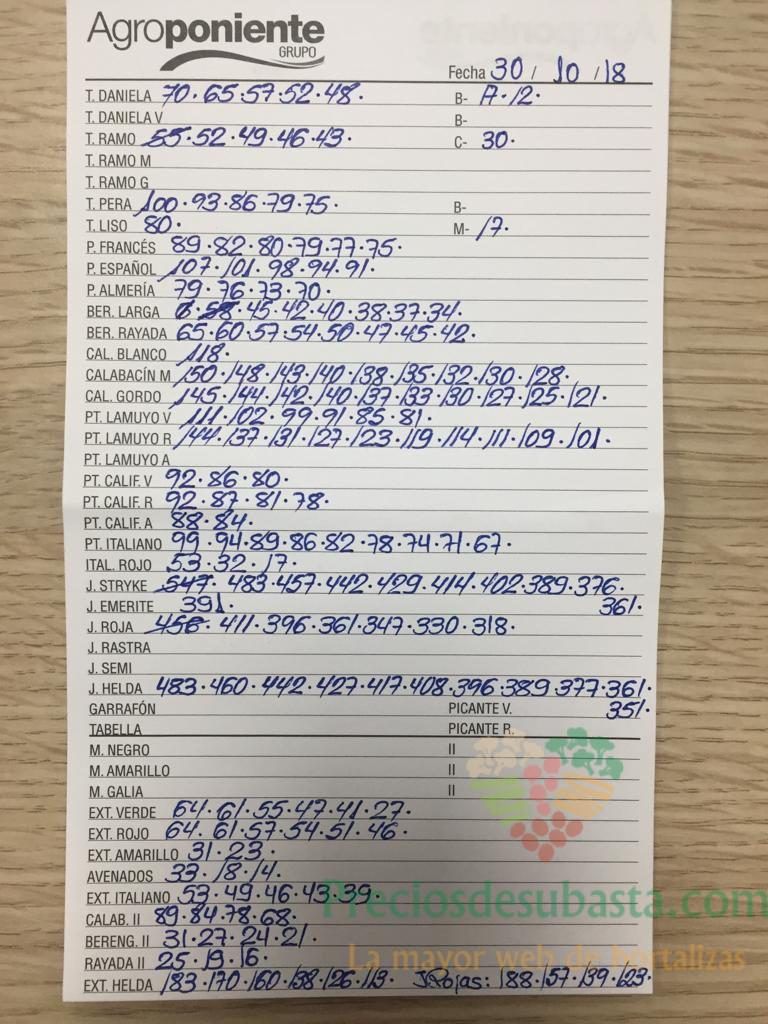 Agroponiente
GRUPO
Fecha 30 / 10 / 18
T. DANIELA 70·65·57·52·48· B- 17·12·
T. DANIELA V B-
T. RAMO 55·52·49·46·43· C- 30·
T. RAMO M
T. RAMO G
T. PERA 100·93·86·79·75· B-
T. LISO 80· M- 17·
P. FRANCÉS 89·82·80·79·77·75·
P. ESPAÑOL 107·101·98·94·91·
P. ALMERÍA 79·76·73·70·
BER. LARGA 45·42·40·38·37·34·
BER. RAYADA 65·60·57·54·50·47·45·42·
CAL. BLANCO 118·
CALABACÍN M 150·148·143·140·138·135·132·130·128·
CAL. GORDO 145·144·142·140·137·133·130·127·125·121·
PT. LAMUYO V 111·102·99·91·85·81·
PT. LAMUYO R 144·137·131·127·123·119·114·111·109·101·
PT. LAMUYO A
PT. CALIF. V 92·86·80·
PT. CALIF. R 92·87·81·78·
PT. CALIF. A 88·84·
PT. ITALIANO 99·94·89·86·82·78·74·71·67·
ITAL. ROJO 53·32·17·
J. STRYKE 547·483·457·442·429·414·402·389·376·
J. EMERITE 391· 361·
J. ROJA 456·411·396·361·347·330·318·
J. RASTRA
J. SEMI
J. HELDA 483·460·442·427·417·408·396·389·377·361·
GARRAFÓN PICANTE V. 351·
TABELLA PICANTE R.
M. NEGRO II
M. AMARILLO II
M. GALIA II
EXT. VERDE 64·61·55·47·41·27·
EXT. ROJO 64·61·57·54·51·46·
EXT. AMARILLO 31·23·
AVENADOS 33·18·14·
EXT. ITALIANO 53·49·46·43·39·
Preciosdesubasta.com
CALAB. II 89·84·78·68·
BERENG. II 31·27·24·21·
La mayor web de hortalizas
RAYADA II 25·19·16·
EXT. HELDA 183·170·160·138·126·113· J.Rojas: 188·157·139·123·